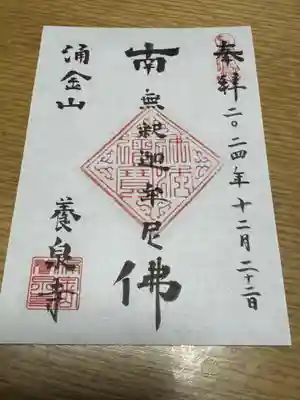 奉拝 二〇二四年十二月二十二日
南無釈迦牟尼佛
涌金山
養泉寺